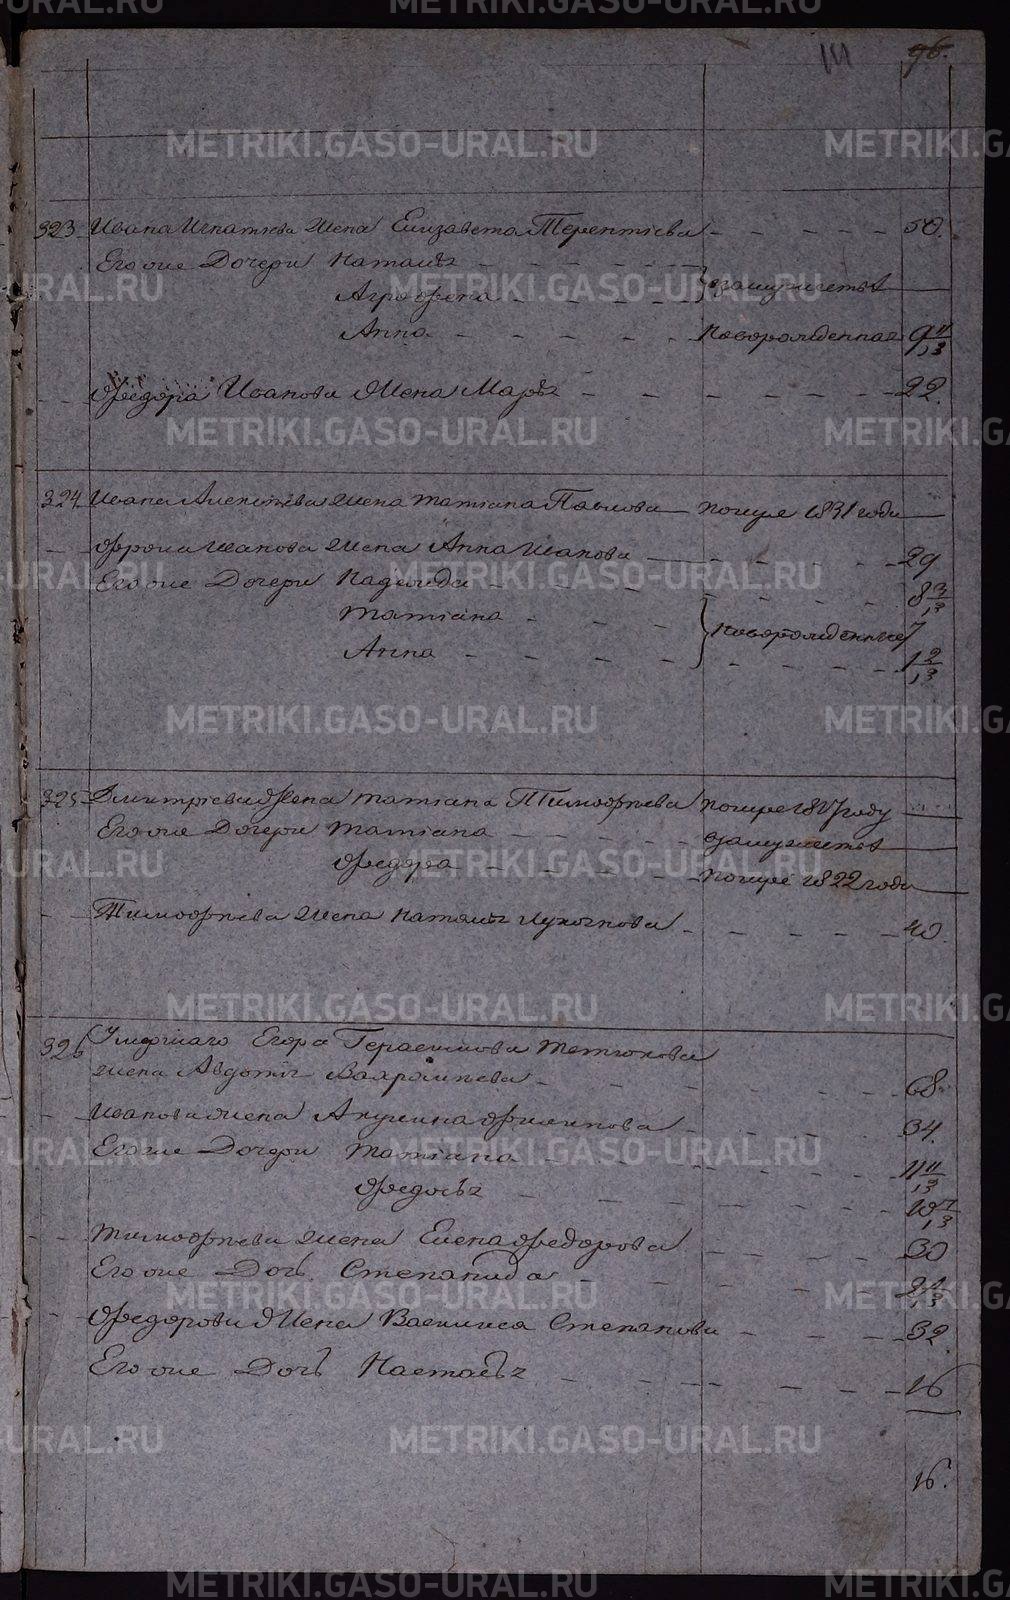 111 96.
323 Ивана Игнатьева Жена Елизавета Терентьева 50.
Егоже Дочери Наталья
Агрофена } взамужестве
Анна Новорожденная 9 11/13
Федора Иванова Жена Марья 22.
324 Ивана Алексеева жена Татиана Павлова 1831 года
Фрола Иванова Жена Анна Иванова 29
Егоже Дочери Надежда 8 3/13
Татиана } новорожденные 7
Анна 1 2/13
325 Дмитриева Жена Татиана Тимофеева 1827 году
Егоже Дочери Татиана взамужестве
Федора 1822 года
Тимофеева Жена Наталья 40.
326 Умершаго Егора Герасимова
жена Авдотья 68.
Иванова жена Акулина Филипова 34.
Егоже Дочери Татиана 11 11/13
Федосья 10 7/13
Тимофеева жена Елена Федорова 30
Егоже Дочь Степанида
Федорова Жена Василиса Степанова 32
Егоже Дочь Настасья 16
16.
METRIKI.GASO-URAL.RU